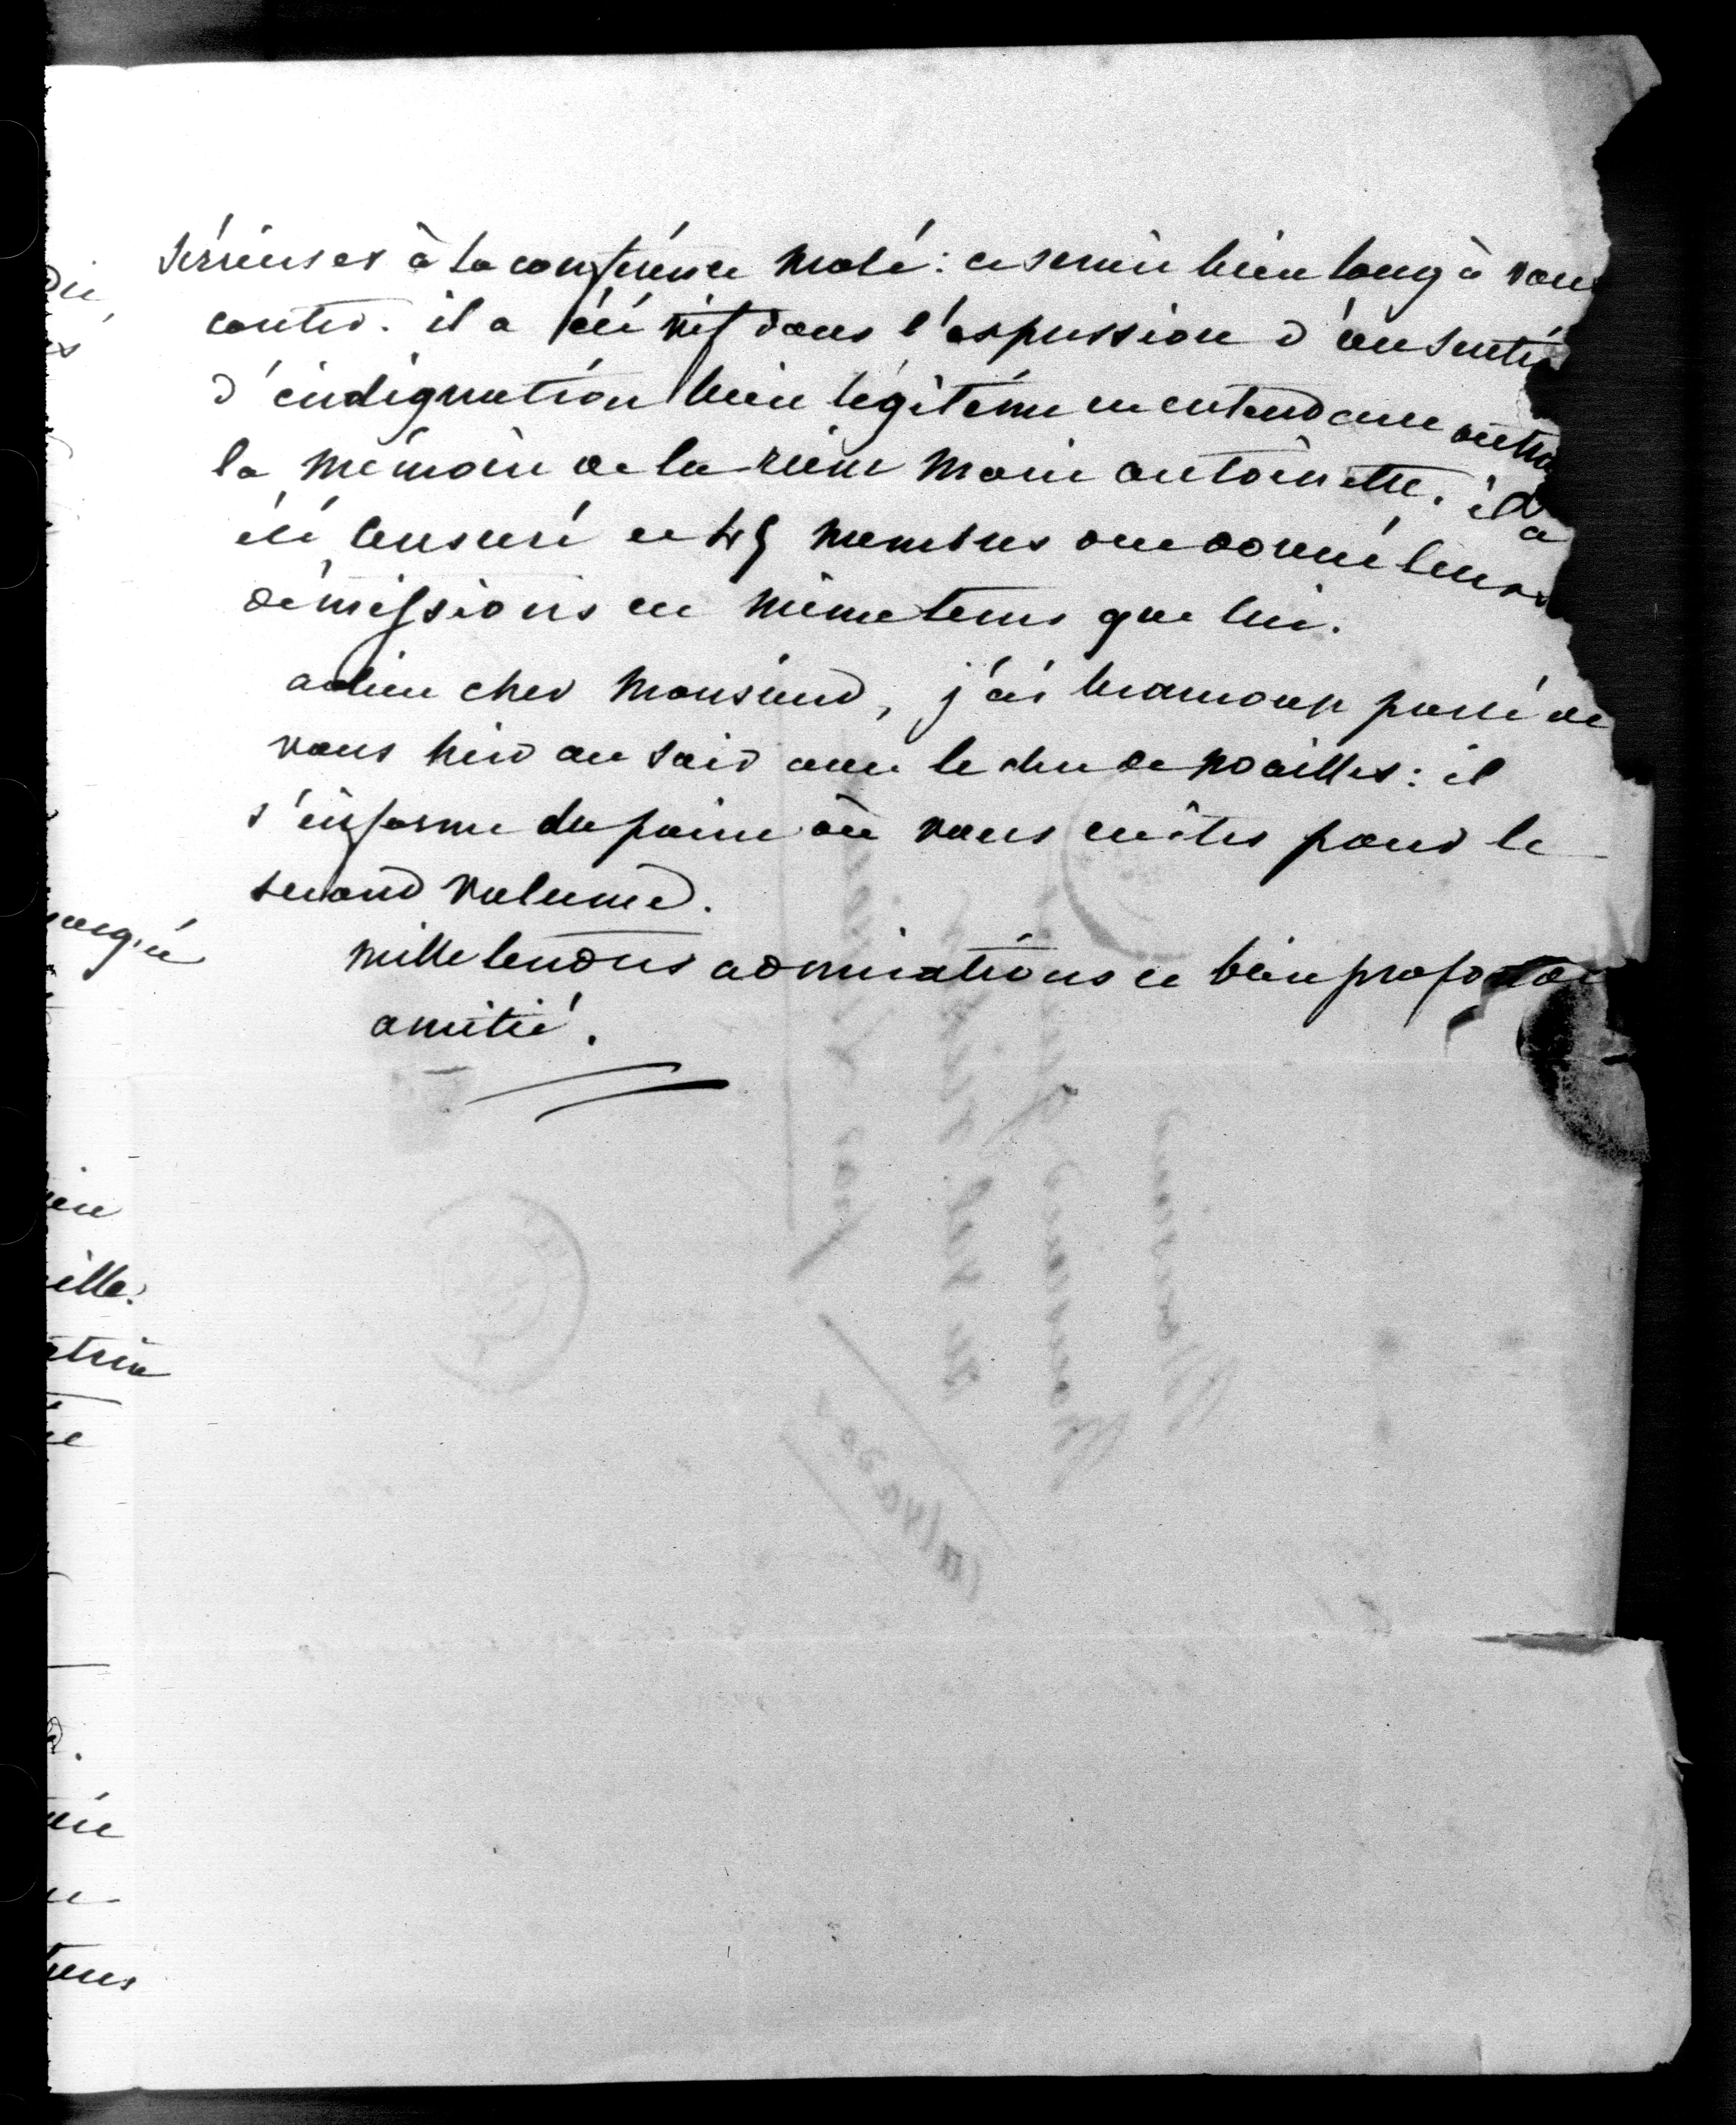 sérieuses à la conférence molé : ce serait bien long à vous
conter. il a été vif dans l'expression d'un senti
d'indignation bien légitime en entendant outra
la mémoire de la reine marie antoinette. il a
été censuré et 45 membres ont donné leurs
démissions en même tems que lui.
adieu cher monsieur, j'ai beaucoup parlé de
vous hier au soir avec le duc de noailles : il
s'informe du point où vous en êtes pour le
second volume.
mille tendres admirations et bien profonde
amitié.